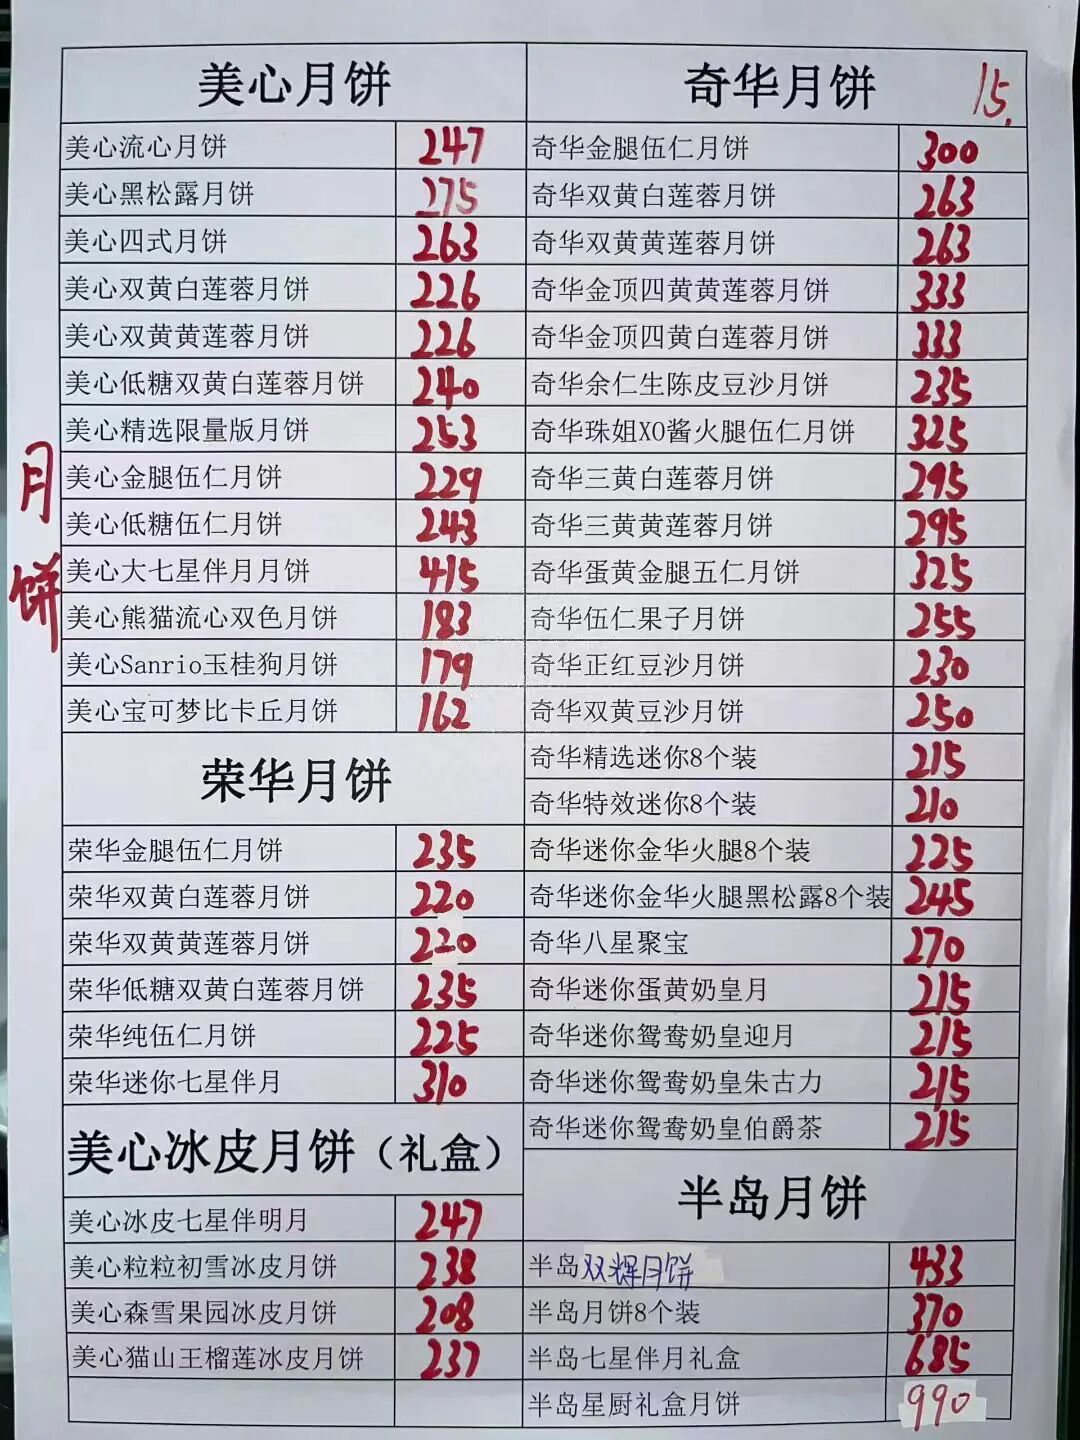 月饼
美心月饼
美心流心月饼 247
美心黑松露月饼 275
美心四式月饼 263
美心双黄白莲蓉月饼 226
美心双黄黄莲蓉月饼 226
美心低糖双黄白莲蓉月饼 240
美心精选限量版月饼 253
美心金腿伍仁月饼 229
美心低糖伍仁月饼 243
美心大七星伴月月饼 415
美心熊猫流心双色月饼 183
美心Sanrio玉桂狗月饼 179
美心宝可梦比卡丘月饼 162
荣华月饼
荣华金腿伍仁月饼 235
荣华双黄白莲蓉月饼 220
荣华双黄黄莲蓉月饼 220
荣华低糖双黄白莲蓉月饼 235
荣华纯伍仁月饼 225
荣华迷你七星伴月 310
美心冰皮月饼（礼盒）
美心冰皮七星伴明月 247
美心粒粒初雪冰皮月饼 238
美心森雪果园冰皮月饼 208
美心猫山王榴莲冰皮月饼 237
奇华月饼 15.
奇华金腿伍仁月饼 300
奇华双黄白莲蓉月饼 263
奇华双黄黄莲蓉月饼 263
奇华金顶四黄黄莲蓉月饼 333
奇华金顶四黄白莲蓉月饼 333
奇华余仁生陈皮豆沙月饼 235
奇华珠姐XO酱火腿伍仁月饼 325
奇华三黄白莲蓉月饼 295
奇华三黄黄莲蓉月饼 295
奇华蛋黄金腿五仁月饼 325
奇华伍仁果子月饼 255
奇华正红豆沙月饼 230
奇华双黄豆沙月饼 250
奇华精选迷你8个装 215
奇华特效迷你8个装 210
奇华迷你金华火腿8个装 225
奇华迷你金华火腿黑松露8个装 245
奇华八星聚宝 270
奇华迷你蛋黄奶皇月 215
奇华迷你鸳鸯奶皇迎月 215
奇华迷你鸳鸯奶皇朱古力 215
奇华迷你鸳鸯奶皇伯爵茶 215
半岛月饼
半岛双辉月饼 433
半岛月饼8个装 370
半岛七星伴月礼盒 685
半岛星厨礼盒月饼 990